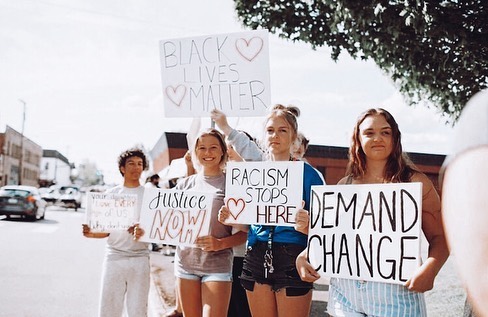 BLACK
LIVES
MATTER
Justice
NOW!
RACISM
STOPS
HERE
DEMAND
CHANGE